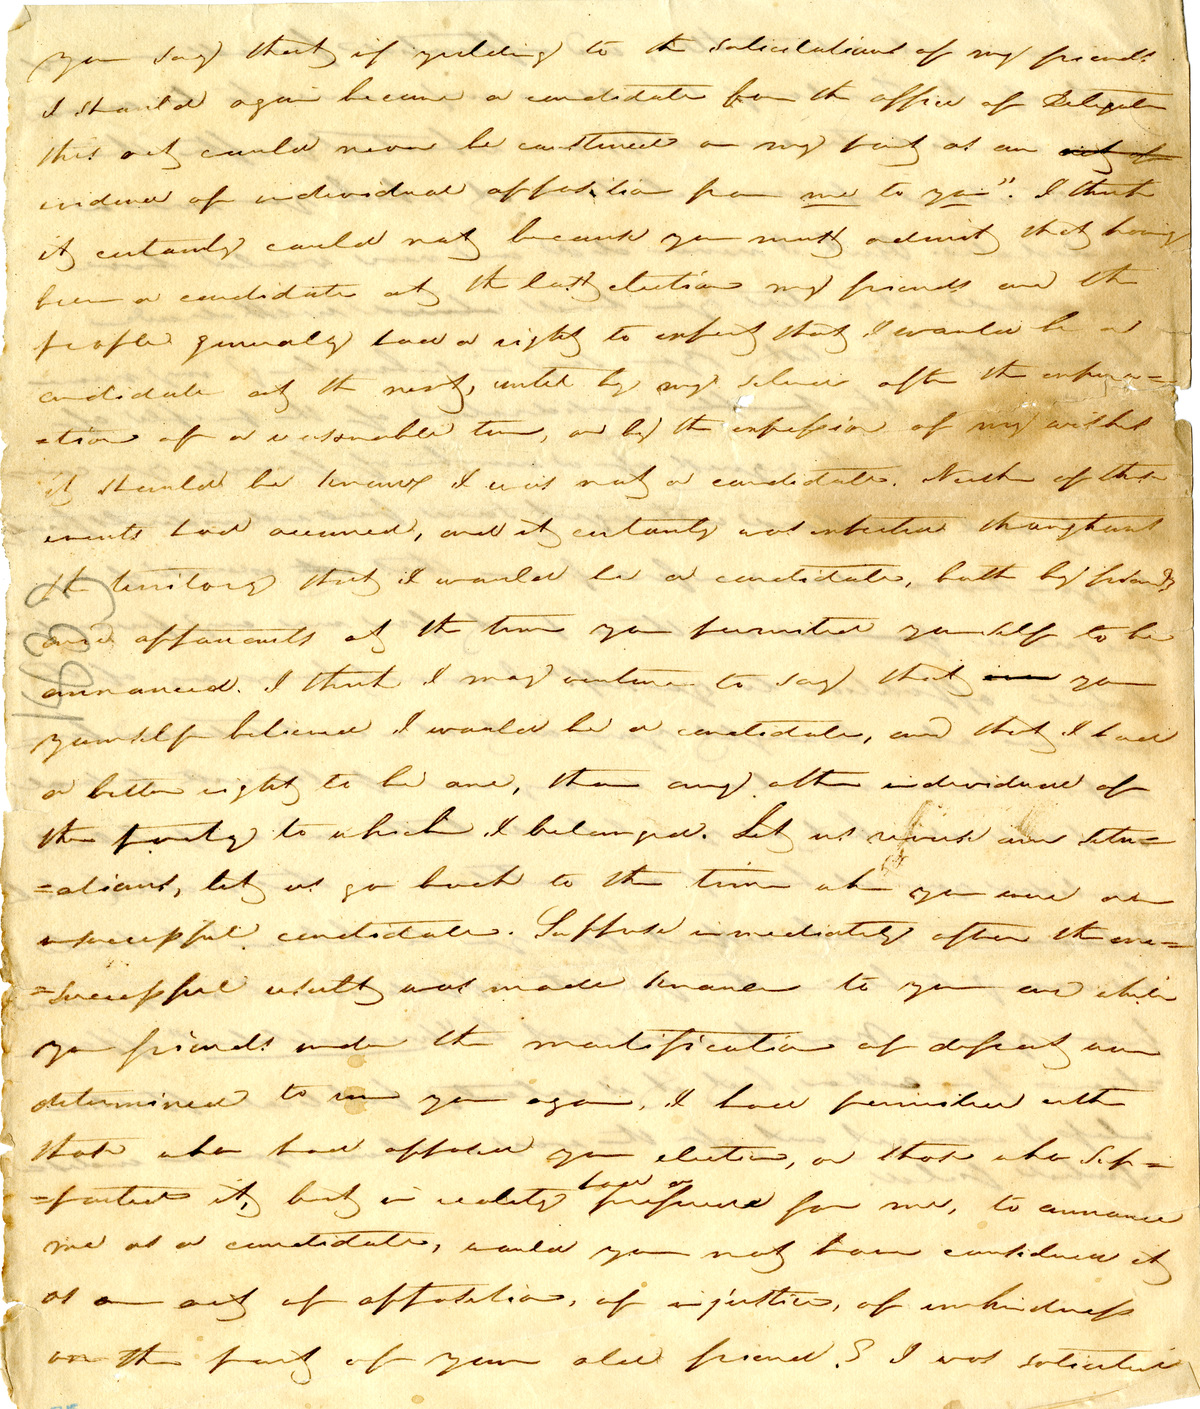 you say that if yielding to the solicitations of my friends
I should again become a candidate for the office of Delegate
this act could never be construed on my part as an act of
evidence of individual opposition from me to you". I think
it certainly could not because you must admit that having
been a candidate at the last election my friends and the
people generally had a right to expect that I would be a
candidate at the next, until by my silence after the expira=
=tion of a reasonable time, or by the expression of my wishes
it should be known I was not a candidate. Neither of these
events had occurred, and it certainly was expected throughout
the territory that I would be a candidate, both by friends
and opponents at the time you permitted yourself to be
announced. I think I may venture to say that you
yourself believed I would be a candidate, and that I had
a better right to be one, than any other individual of
the party to which I belonged. Let us reverse our situ=
=ations, let us go back to the time when you were an
unsuccessful candidate. Suppose immediately after the un=
=successful result was made known to you and while
your friends under the mortification of defeat were
determined to run you again, I had permitted either
those who had opposed your election, or those who sup=
=ported it, but in reality had a preference for me, to announce
me as a candidate, would you not have considered it
as an act of opposition, of injustice, of unkindness
on the part of your old friend? I was solicited
1835